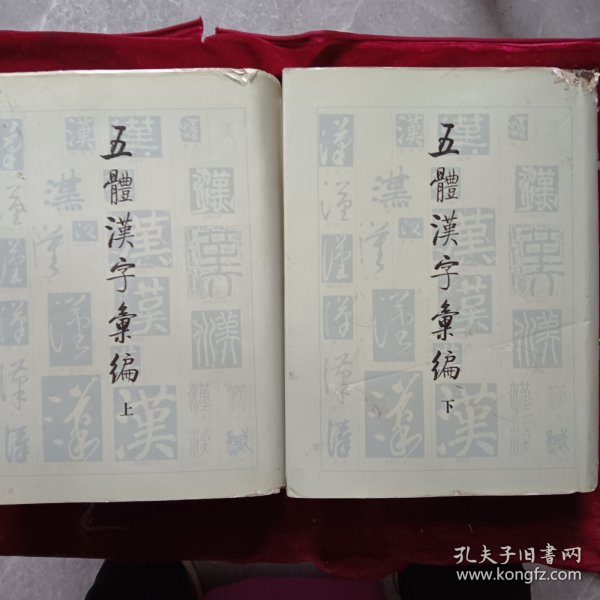 五體漢字彙編
上
五體漢字彙編
下
孔夫子旧书网
www.kongfz.com